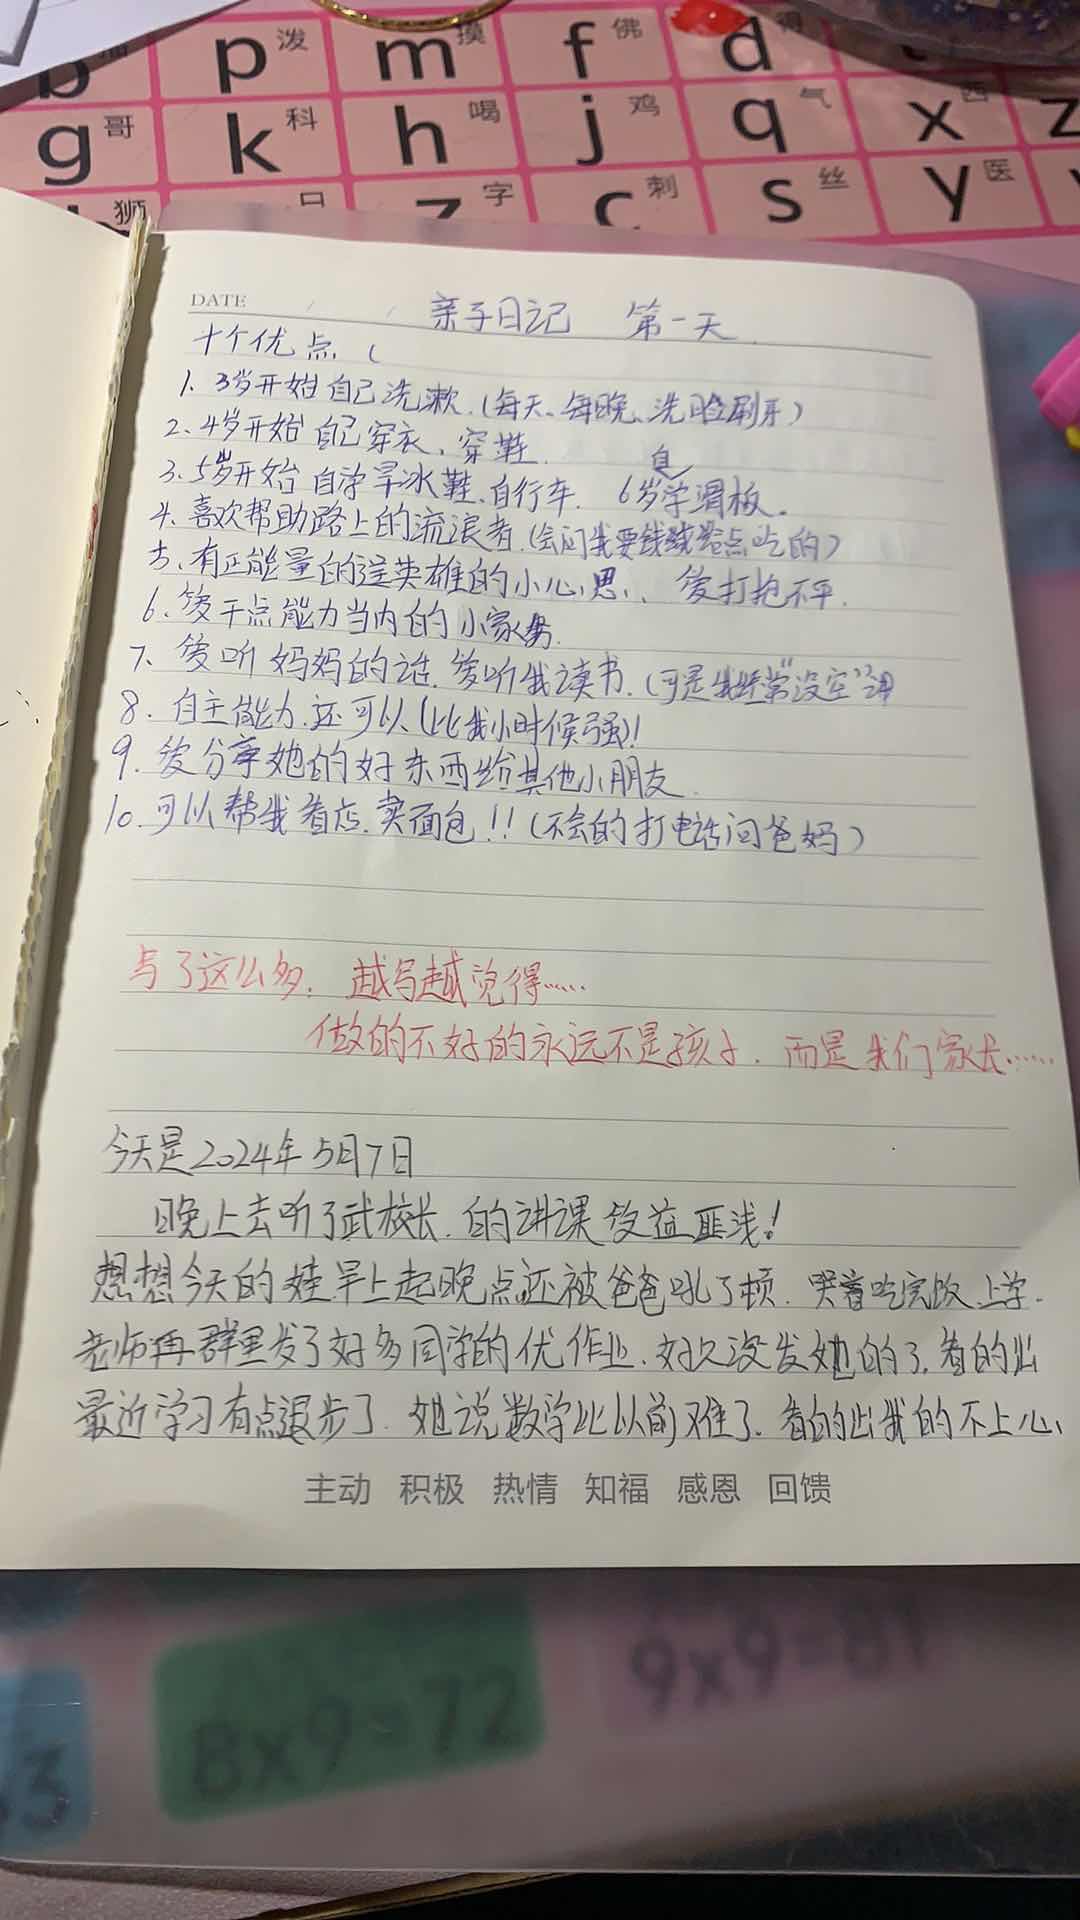 泼 摸 佛 得
b p m f d
哥 科 喝 鸡 气 西
g k h j q x z
狮 日 字 刺 丝 医
z c s y
DATE
亲子日记 第一天
十个优点 (
1. 3岁开始自己洗漱.(每天、每晚、洗脸刷牙)
2. 4岁开始自己穿衣、穿鞋.
3. 5岁开始自学旱冰鞋、自行车. 6岁自学滑板.
4. 喜欢帮助路上的流浪者.(会问我要钱或给点吃的)
5. 有正能量的逞英雄的小心思、爱打抱不平.
6. 爱干点能力当内的小家务.
7. 爱听妈妈的话.爱听我读书.(可是我经常"没空")
8. 自主能力.还可以(比我小时候强)!
9. 爱分享她的好东西给其他小朋友.
10. 可以帮我看店.卖面包!!(不会的打电话问爸妈)
写了这么多.越写越觉得……
做的不好的永远不是孩子.而是我们家长……
今天是2024年5月7日
晚上去听了武校长.的讲课受益匪浅!
想想今天的娃早上起晚点还被爸爸吼了顿.哭着吃完饭上学.
老师再群里发了好多同学的优作业.好久没发她的了.看的出
最近学习有点退步了.她说数学比以前难了.看的出我的不上心、
主动 积极 热情 知福 感恩 回馈
8x9=72
9x9=81
63